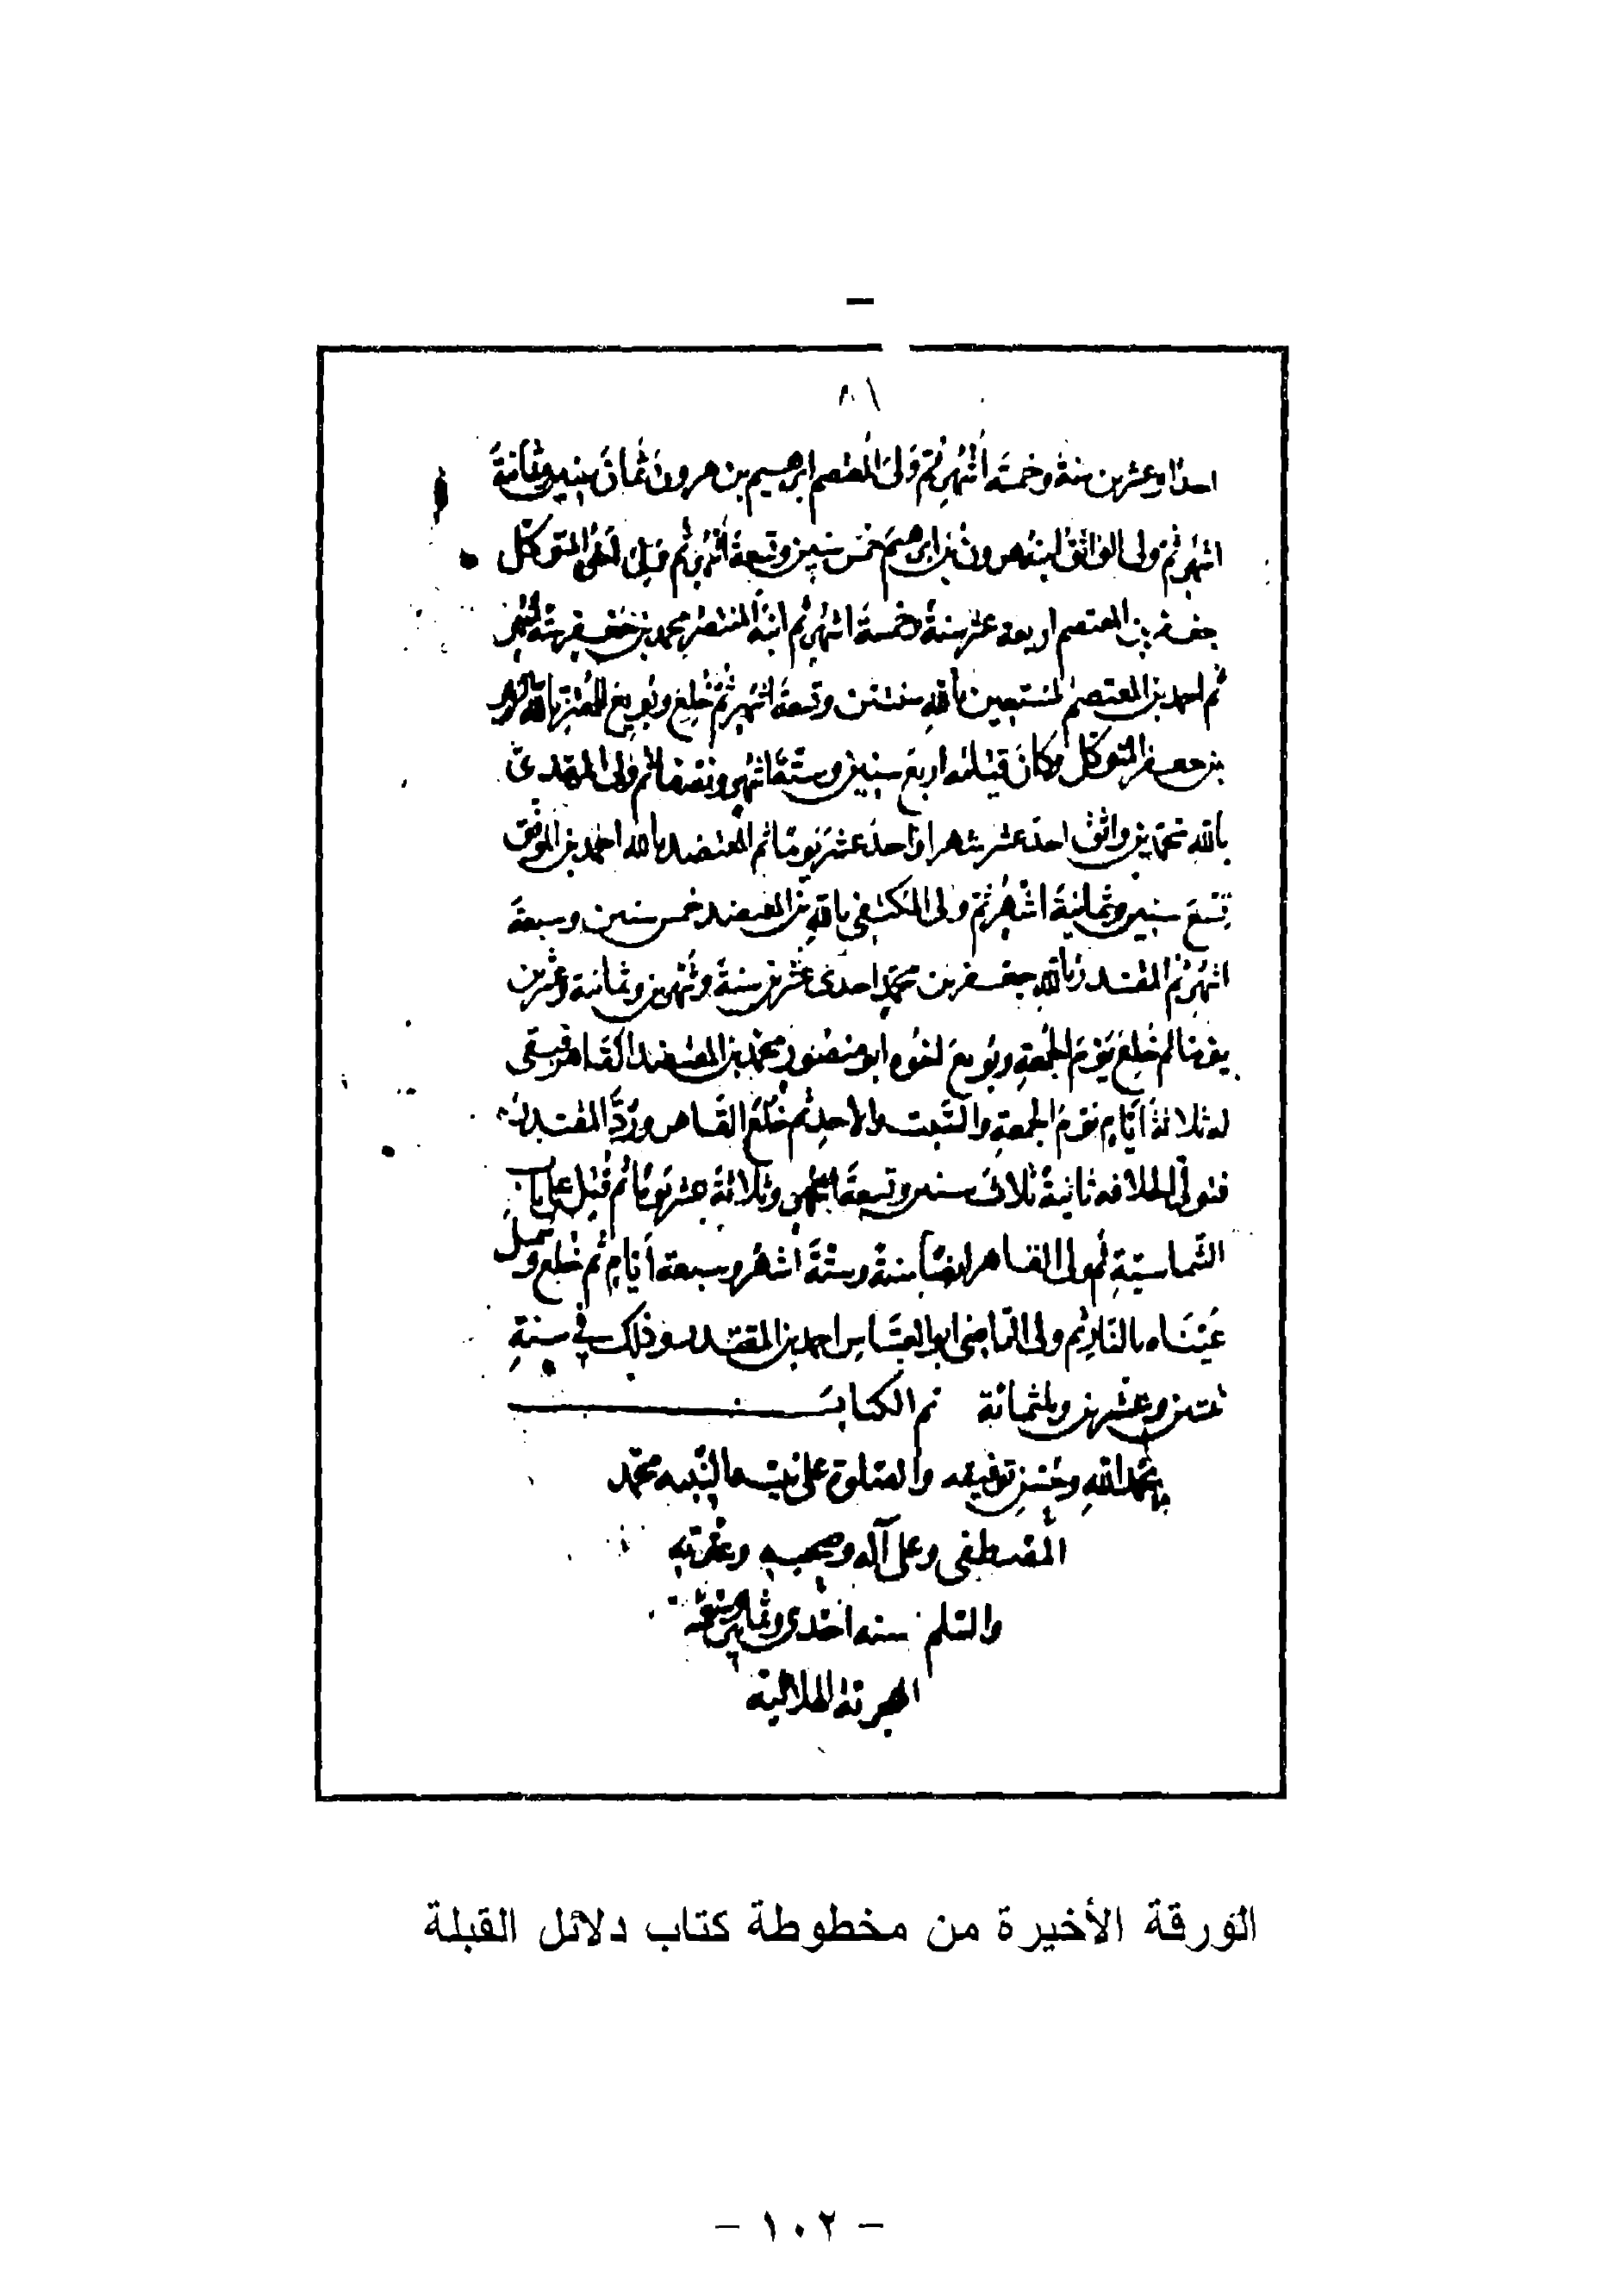 ٨١
احدا وعشرين سنة وخمسة اشهر ثم ولى المعتصم ابرهيم بن هرون ثمان سنين وثمانية
اشهر ثم ولى الواثق ابنه هرون بن ابرهيم خمس سنين وتسعة اشهر ثم قتل المتوكل
جعفر بن المعتصم اربعة عشر سنة وخمسة اشهر ثم ابنه المنتصر محمد بن جعفر ستة اشهر
ثم احمد بن المعتصم المستعين بالله سنتين وتسعة اشهر ثم خلع وبويع المعتز بالله
بن جعفر المتوكل وكان قتله اربع سنين وستة اشهر ونصفا ثم ولى المهتدى
بالله محمد بن واثق احد عشر شهرا واحد عشر يوما ثم المعتضد بالله احمد بن الموفق
تسع سنين وثمانية اشهر ثم ولى المكتفى بالله بن المعتضد خمس سنين وسبعة
اشهر ثم المقتدر بالله جعفر بن محمد احدى عشرين سنة وشهرين وثمانية وعشرين
يوما ثم خلع يوم الجمعة وبويع اخوه ابو منصور محمد بن المعتضد القاهر فبقى
له ثلاثة ايام يوم الجمعة والسبت والاحد ثم خلع القاهر ورد المقتدر
فتولى الخلافه ثانية ثلاث سنين وتسعة اشهر وثلاثة عشر يوما ثم قتل على باب
الشماسية ثم ولى القاهر ايضا سنة وستة اشهر وسبعة أيام ثم خلع وسمل
عيناه بالنار ثم ولى الراضى ابو العباس احمد بن المقتدر وذلك في سنة
ثنتين وعشرين وثلثمائة تم الكتاب
بحمد الله وحسن توفيقه والصلوة على نبيه محمد
المصطفى وعلى آله وصحبه وعترته
والسلم سنه احدى وثمانين
الهجرية الهلالية
الورقة الأخيرة من مخطوطة كتاب دلائل القبلة
- ١٠٢ -